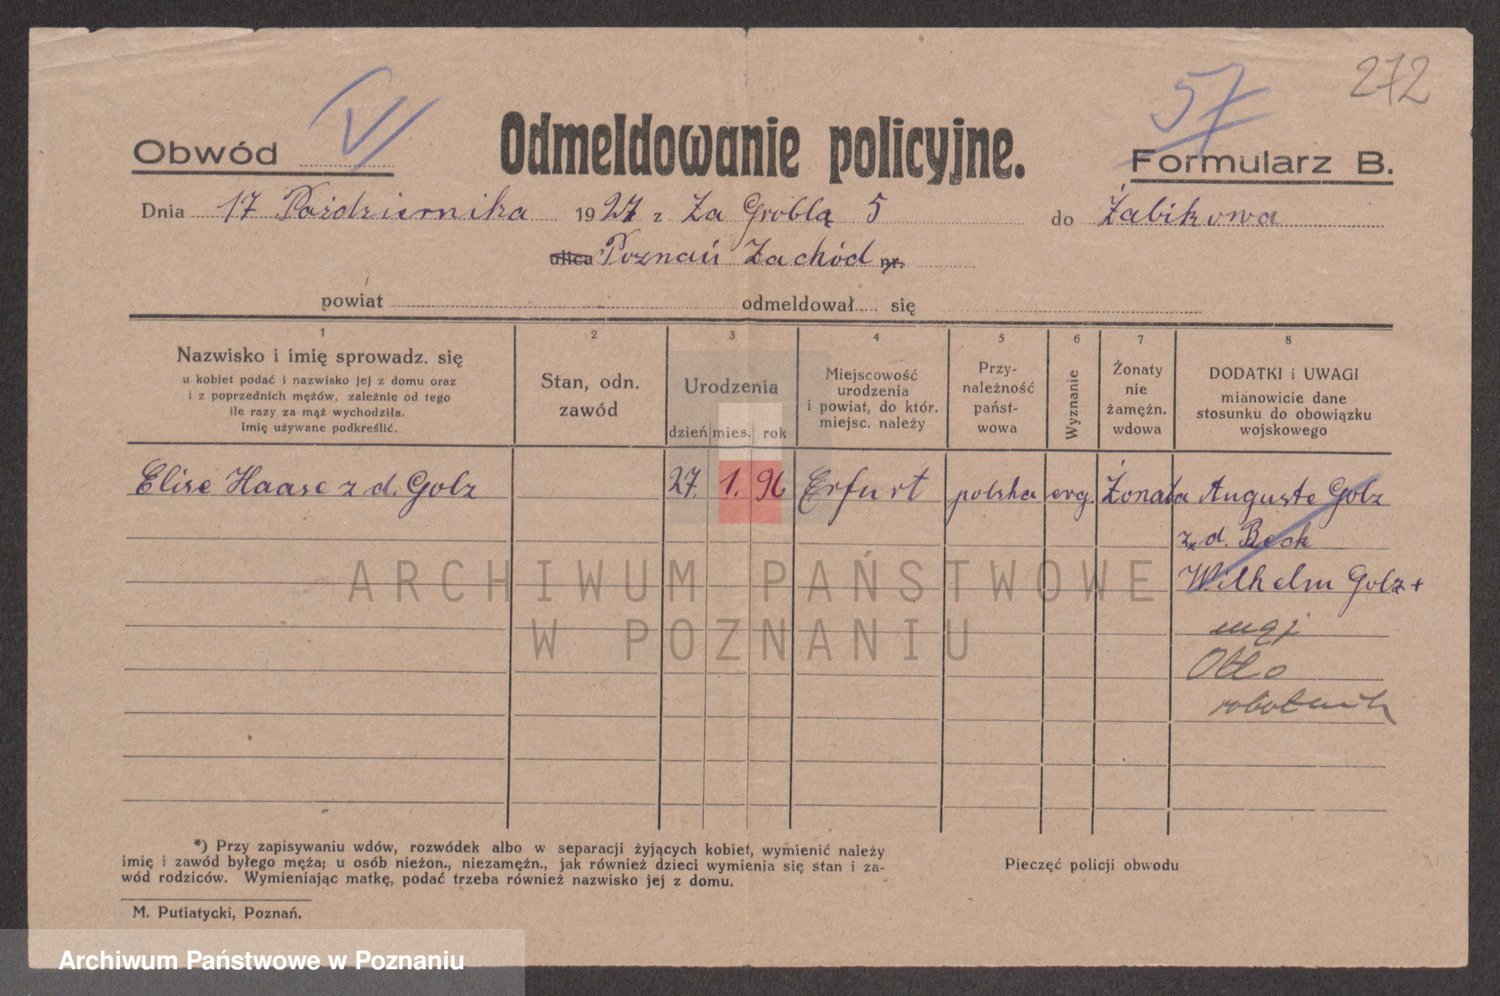 272
57
Obwód VI
Odmeldowanie policyjne.
Formularz B.
Dnia 17 Października 1927 z Za Groblą 5 do Żabikowa
ulica Poznań Zachód nr.
powiat odmeldował się
1 2 3 4 5 6 7 8
Nazwisko i imię sprowadz. się
u kobiet podać i nazwisko jej z domu oraz
i z poprzednich mężów, zależnie od tego
ile razy za mąż wychodziła.
Imię używane podkreślić.
Stan, odn.
zawód
Urodzenia
dzień mies. rok
Miejscowość
urodzenia
i powiat, do któr.
miejsc. należy
Przy-
należność
państ-
wowa
Wyznanie
Żonaty
nie
żamężn.
wdowa
DODATKI i UWAGI
mianowicie dane
stosunku do obowiązku
wojskowego
Elise Haase z d. Golz 27. 1. 96 Erfurt polska ewg. Żonata Auguste Golz
z d. Beck
Wilhelm Golz +
mąż
Otto
robotnik
ARCHIWUM PAŃSTWOWE
W POZNANIU
*) Przy zapisywaniu wdów, rozwódek albo w separacji żyjących kobiet, wymienić należy
imię i zawód byłego męża; u osób nieżon., niezamężn., jak również dzieci wymienia się stan i za-
wód rodziców. Wymieniając matkę, podać trzeba również nazwisko jej z domu.
Pieczęć policji obwodu
M. Putiatycki, Poznań.
Archiwum Państwowe w Poznaniu